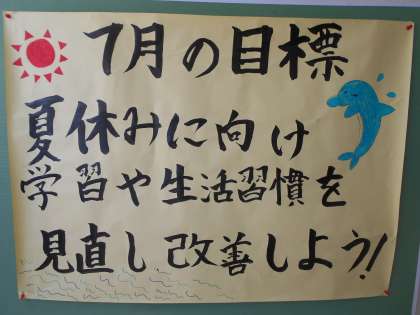 7月の目標
夏休みに向け
学習や生活習慣を
見直し改善しよう!